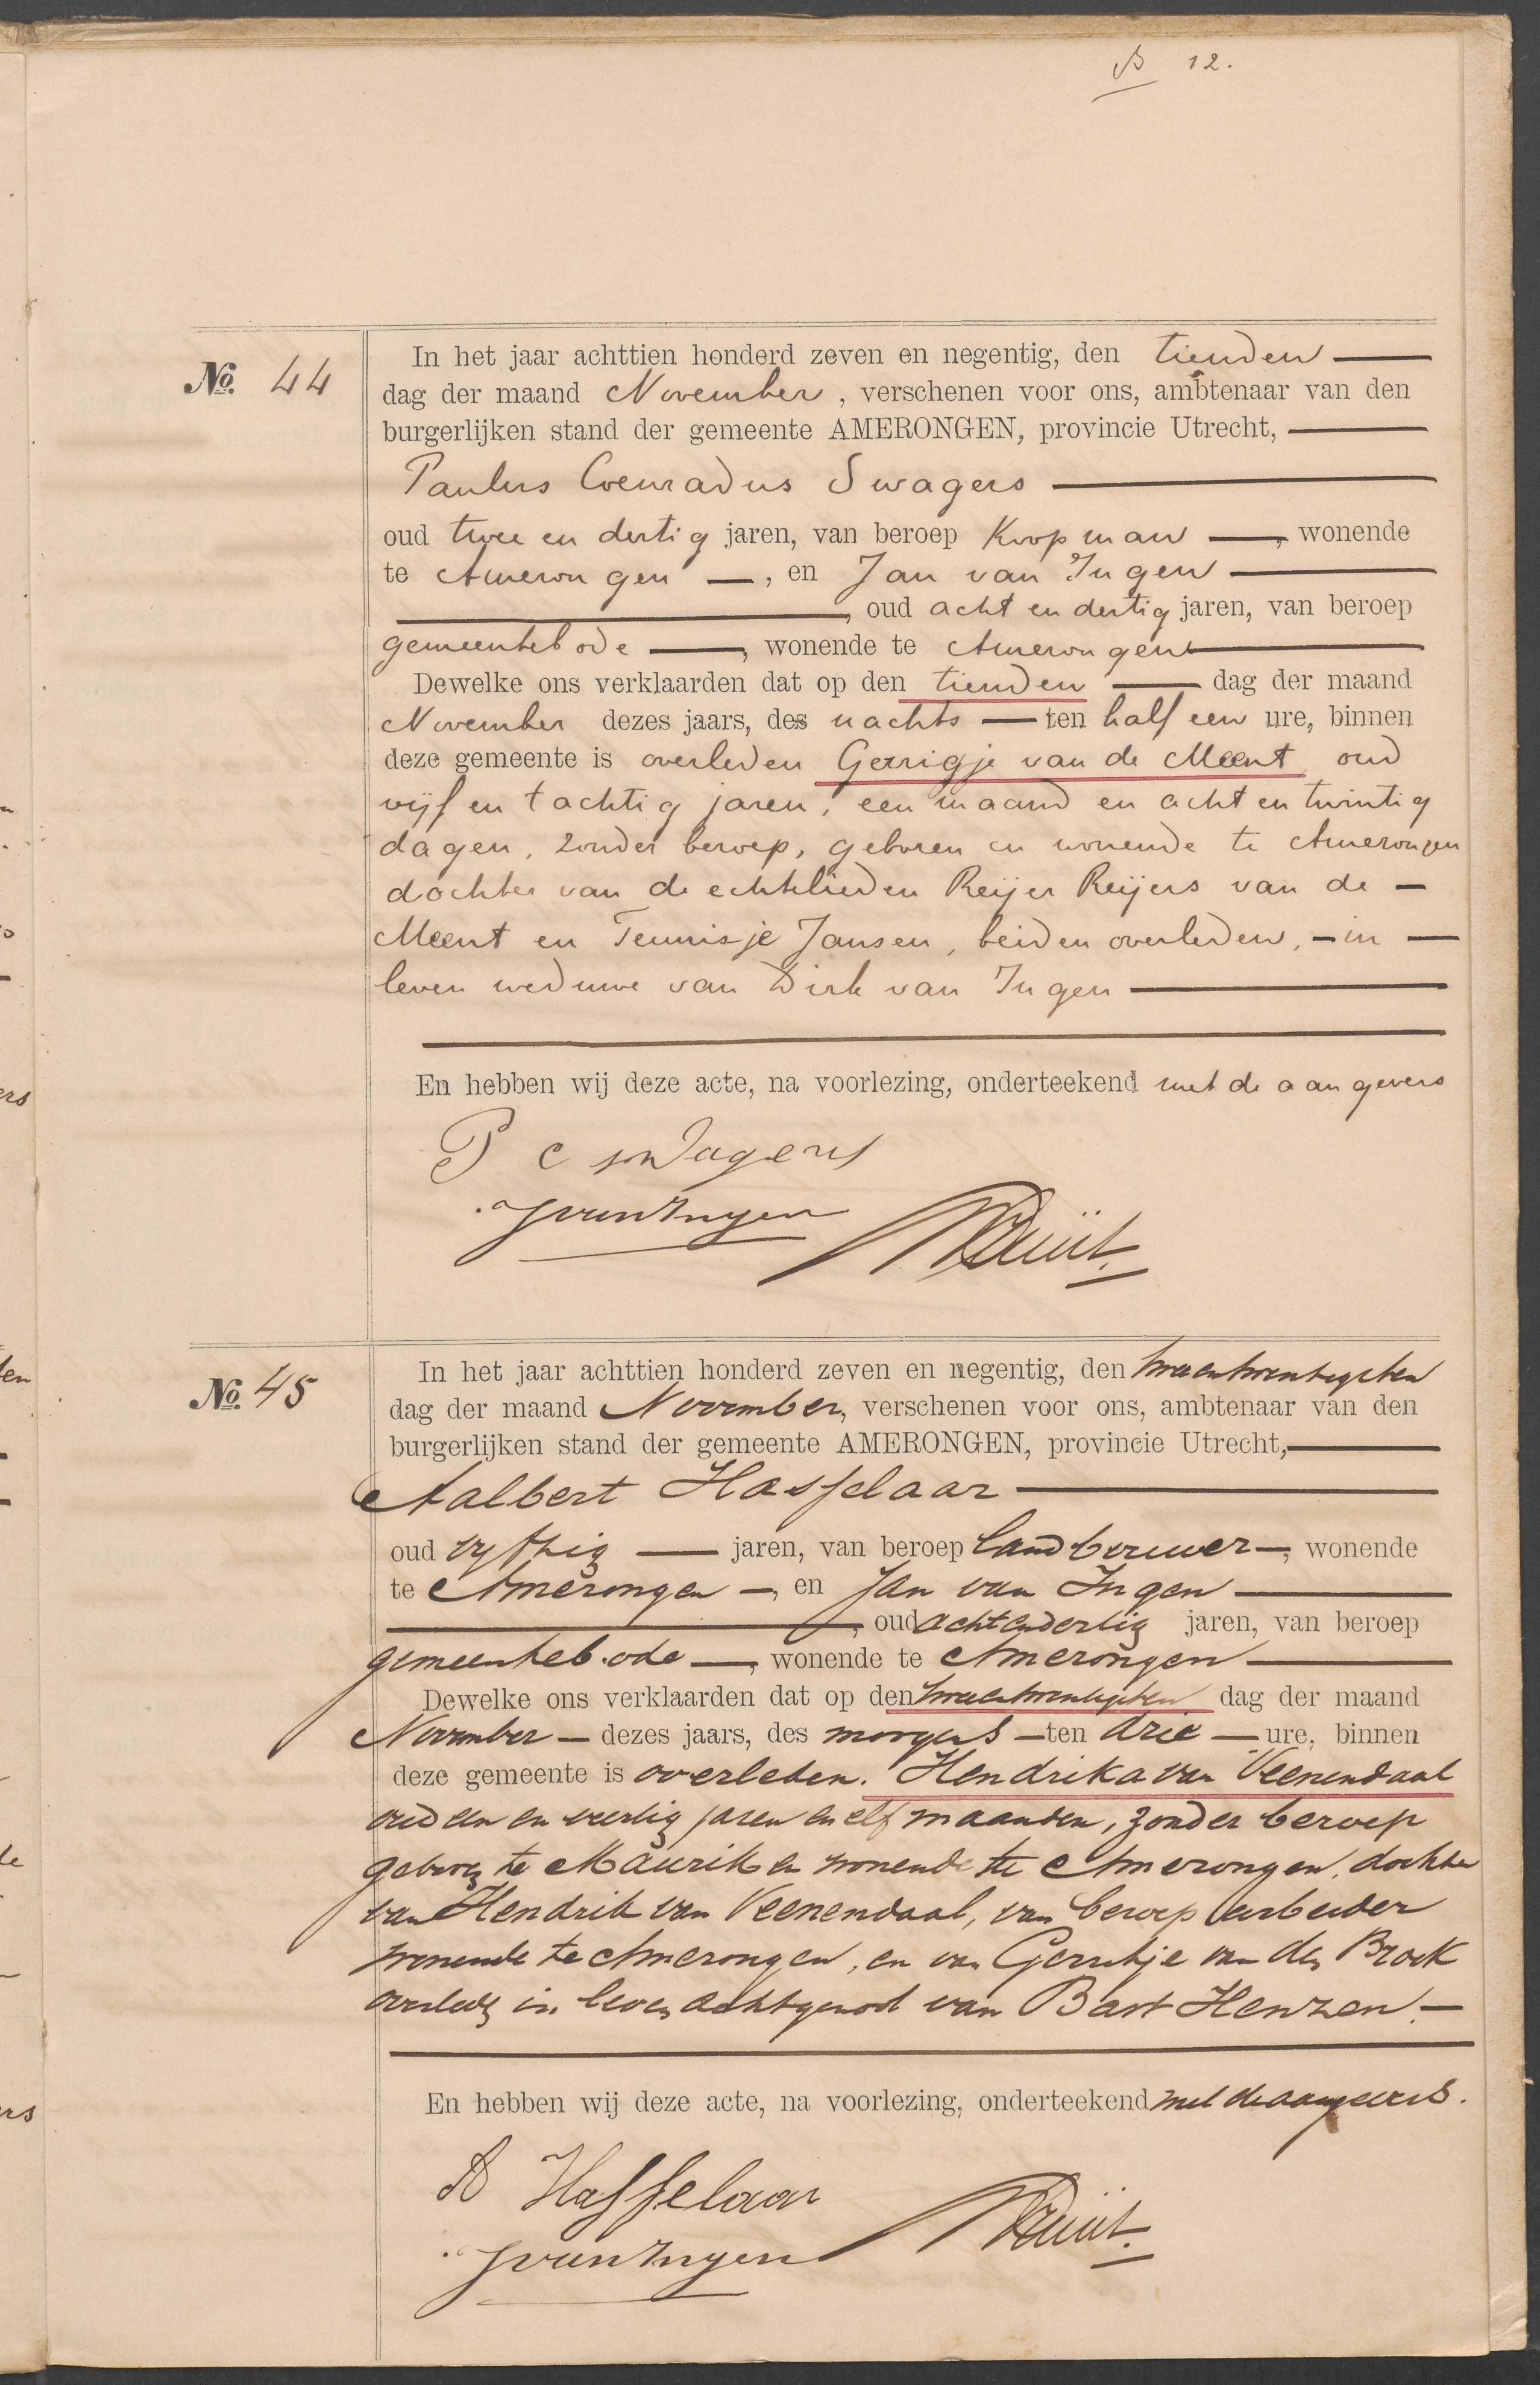 B 12.
No. 44
In het jaar achttien honderd zeven en negentig, den tienden
dag der maand November, verschenen voor ons, ambtenaar van den
burgerlijken stand der gemeente AMERONGEN, provincie Utrecht,
Paulus Coenradus Swagers
oud twee en dertig jaren, van beroep Koopman, wonende
te Amerongen, en Jan van Ingen
, oud acht en dertig jaren, van beroep
gemeentebode, wonende te Amerongen
Dewelke ons verklaarden dat op den tienden dag der maand
November dezes jaars, des nachts ten half een ure, binnen
deze gemeente is overleden Gerrigje van de Meent oud
vijf en tachtig jaren, een maand en acht en twintig
dagen, zonder beroep, geboren en wonende te Amerongen
dochter van de echtelieden Reijer Reijers van de
Meent en Teunisje Jansen, beiden overleden, in
leven weduwe van Dirk van Ingen
En hebben wij deze acte, na voorlezing, onderteekend met de aangevers
P C swagers
Jvan Ingen
No. 45
In het jaar achttien honderd zeven en negentig, den tweeentwentigsten
dag der maand November, verschenen voor ons, ambtenaar van den
burgerlijken stand der gemeente AMERONGEN, provincie Utrecht,
Aalbert Hasselaar
oud vyftig jaren, van beroep landbouwer, wonende
te Amerongen, en Jan van Ingen
, oud achtendertig jaren, van beroep
gemeentebode, wonende te Amerongen
Dewelke ons verklaarden dat op den tweeentwentigsten dag der maand
November dezes jaars, des morgens ten drie ure, binnen
deze gemeente is overleden. Hendrika van Veenendaal
oud een en veertig jaren en elf maanden, zonder beroep
geboren te Maurik en wonende te Amerongen, dochter
van Hendrik van Veenendaal, van beroep arbeider
wonende te Amerongen, en van Gerritje van den Broek
overleden in leven echtgenoot van Bart Henzen.
En hebben wij deze acte, na voorlezing, onderteekend met de aangevers.
A Hasselaar
Jvan Ingen